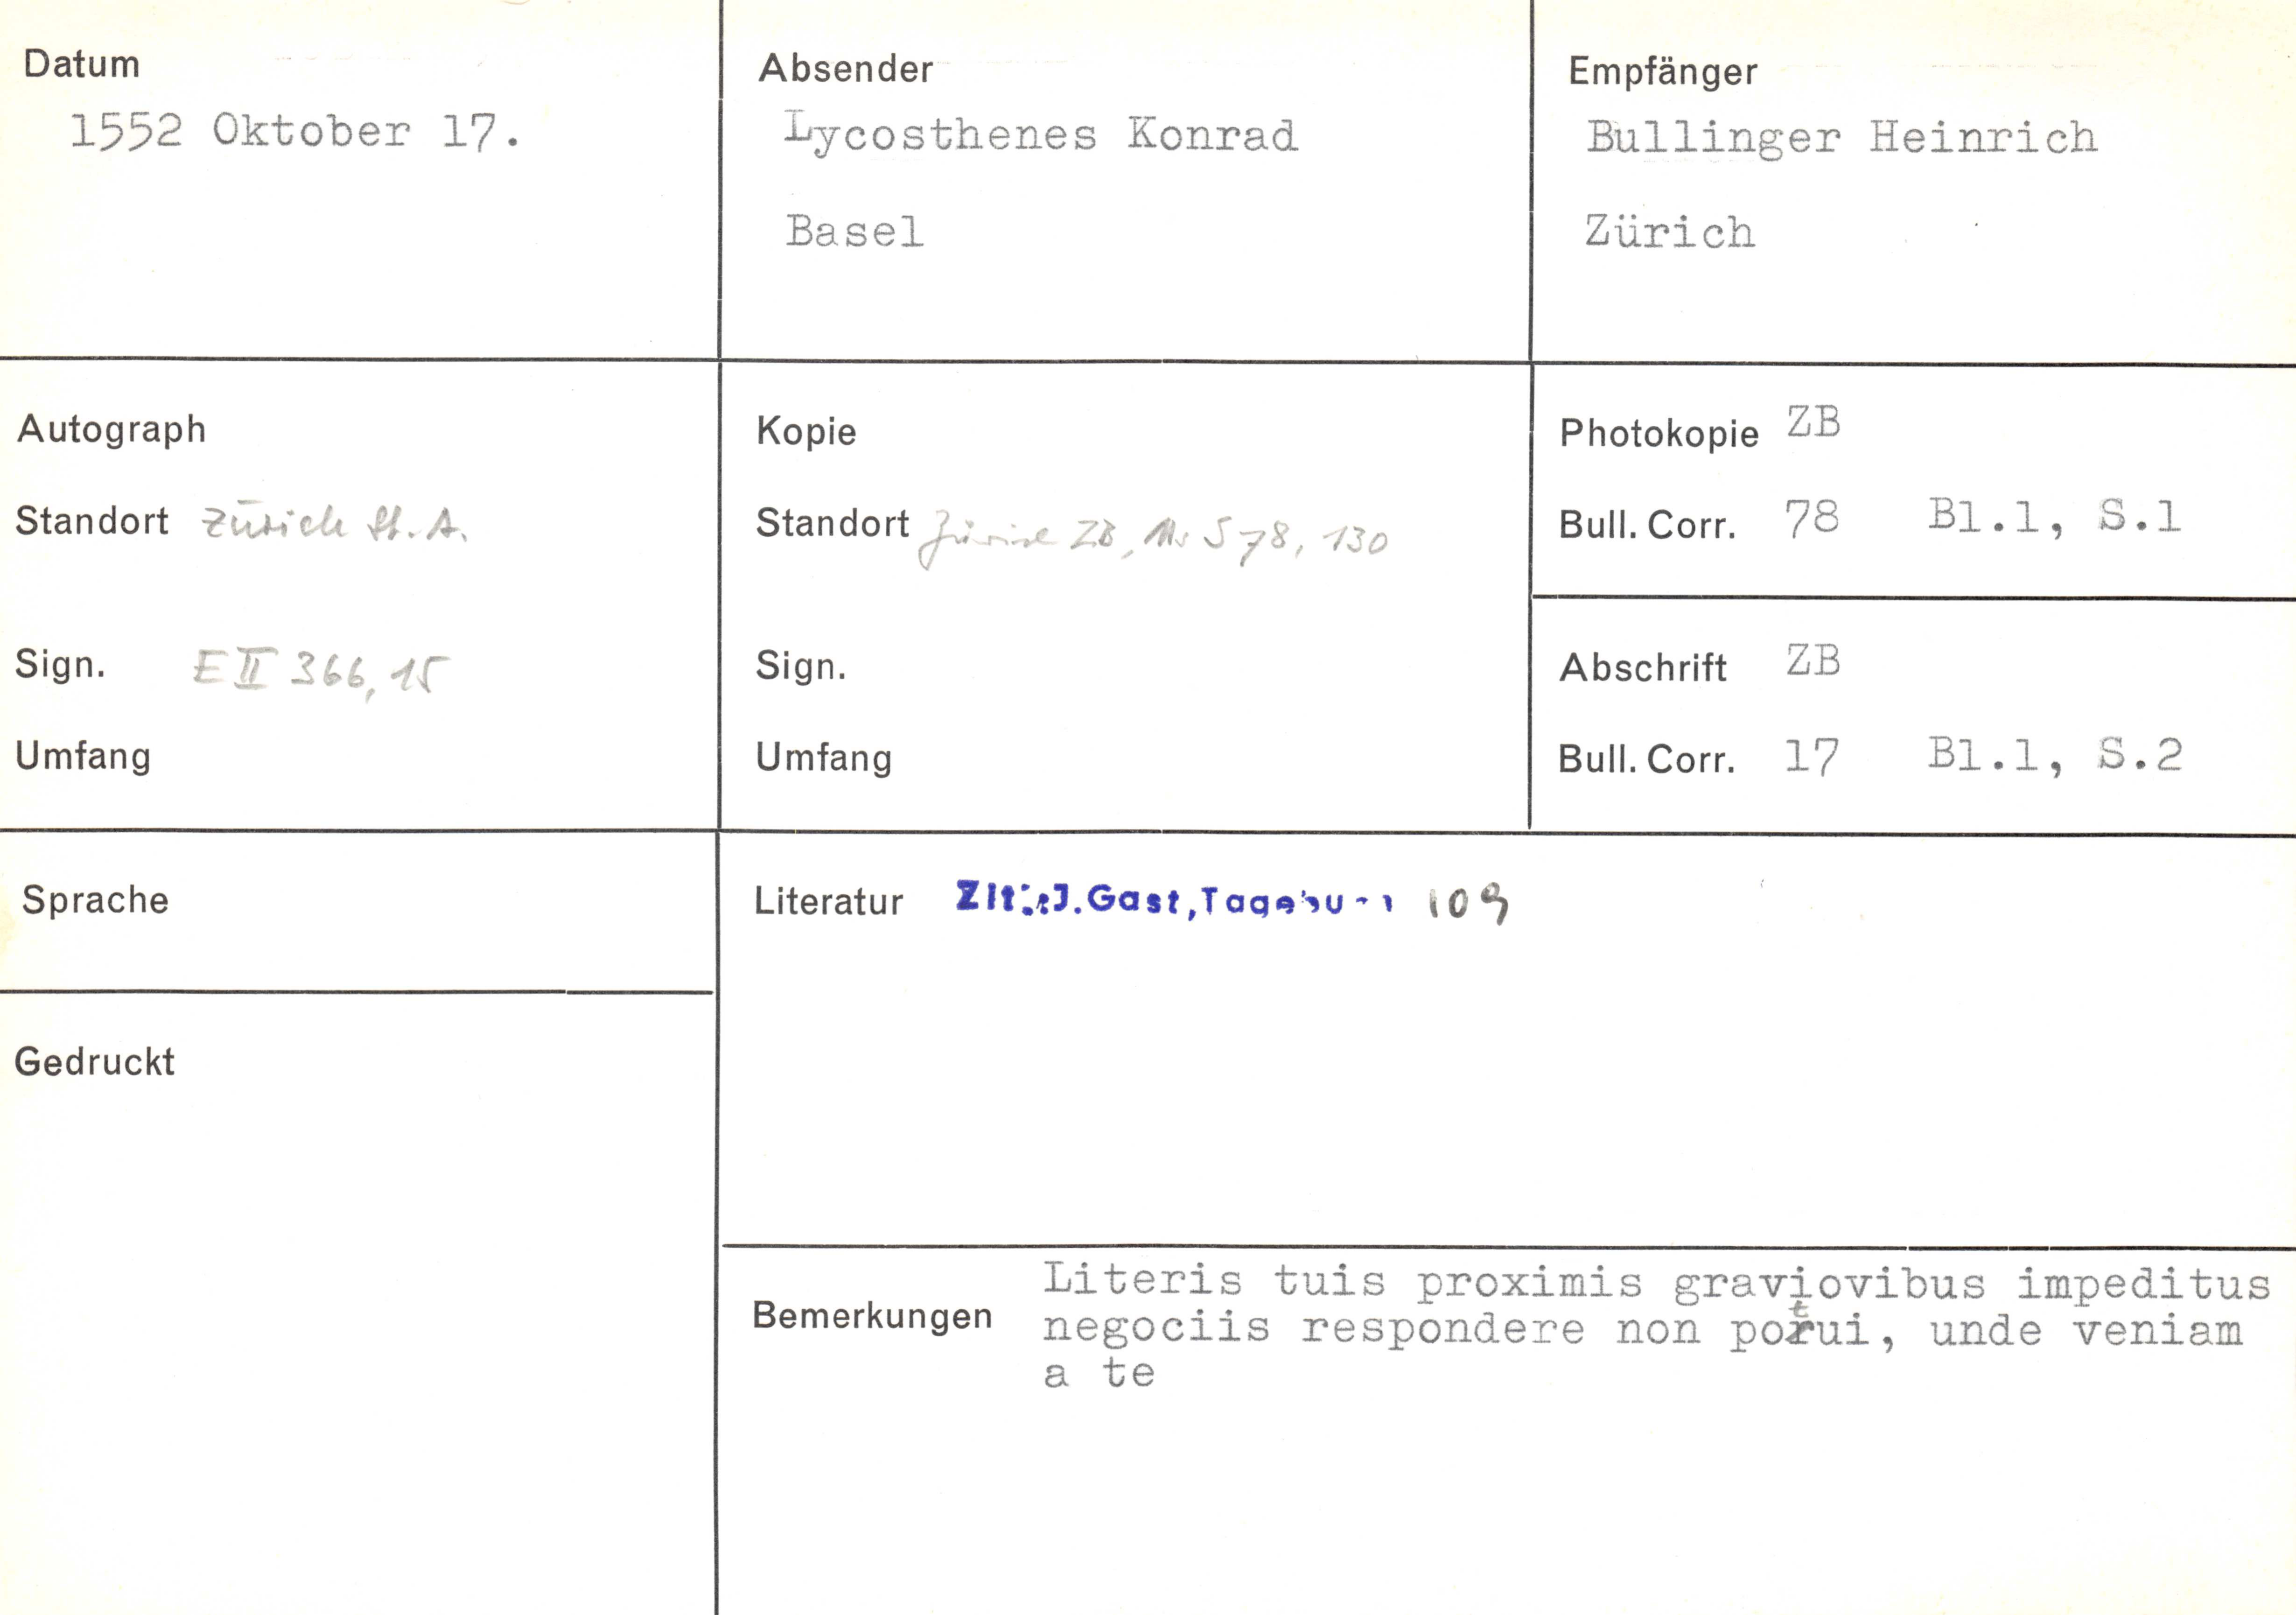 Datum
1552 Oktober 17.
Absender
Lycosthenes Konrad
Basel
Empfänger
Bullinger Heinrich
Zürich
Autograph
Standort Zürich St. A.
Sign. E II 366, 15
Umfang
Kopie
Standort Zürich ZB, Ms S 78, 130
Sign.
Umfang
Photokopie ZB
Bull. Corr. 78 Bl.1, S.1
Abschrift ZB
Bull. Corr. 17 Bl.1, S.2
Sprache
Gedruckt
Literatur J.Gast, 109
Bemerkungen Literis tuis proximis graviovibus impeditus
negociis respondere non potui, unde veniam
a te